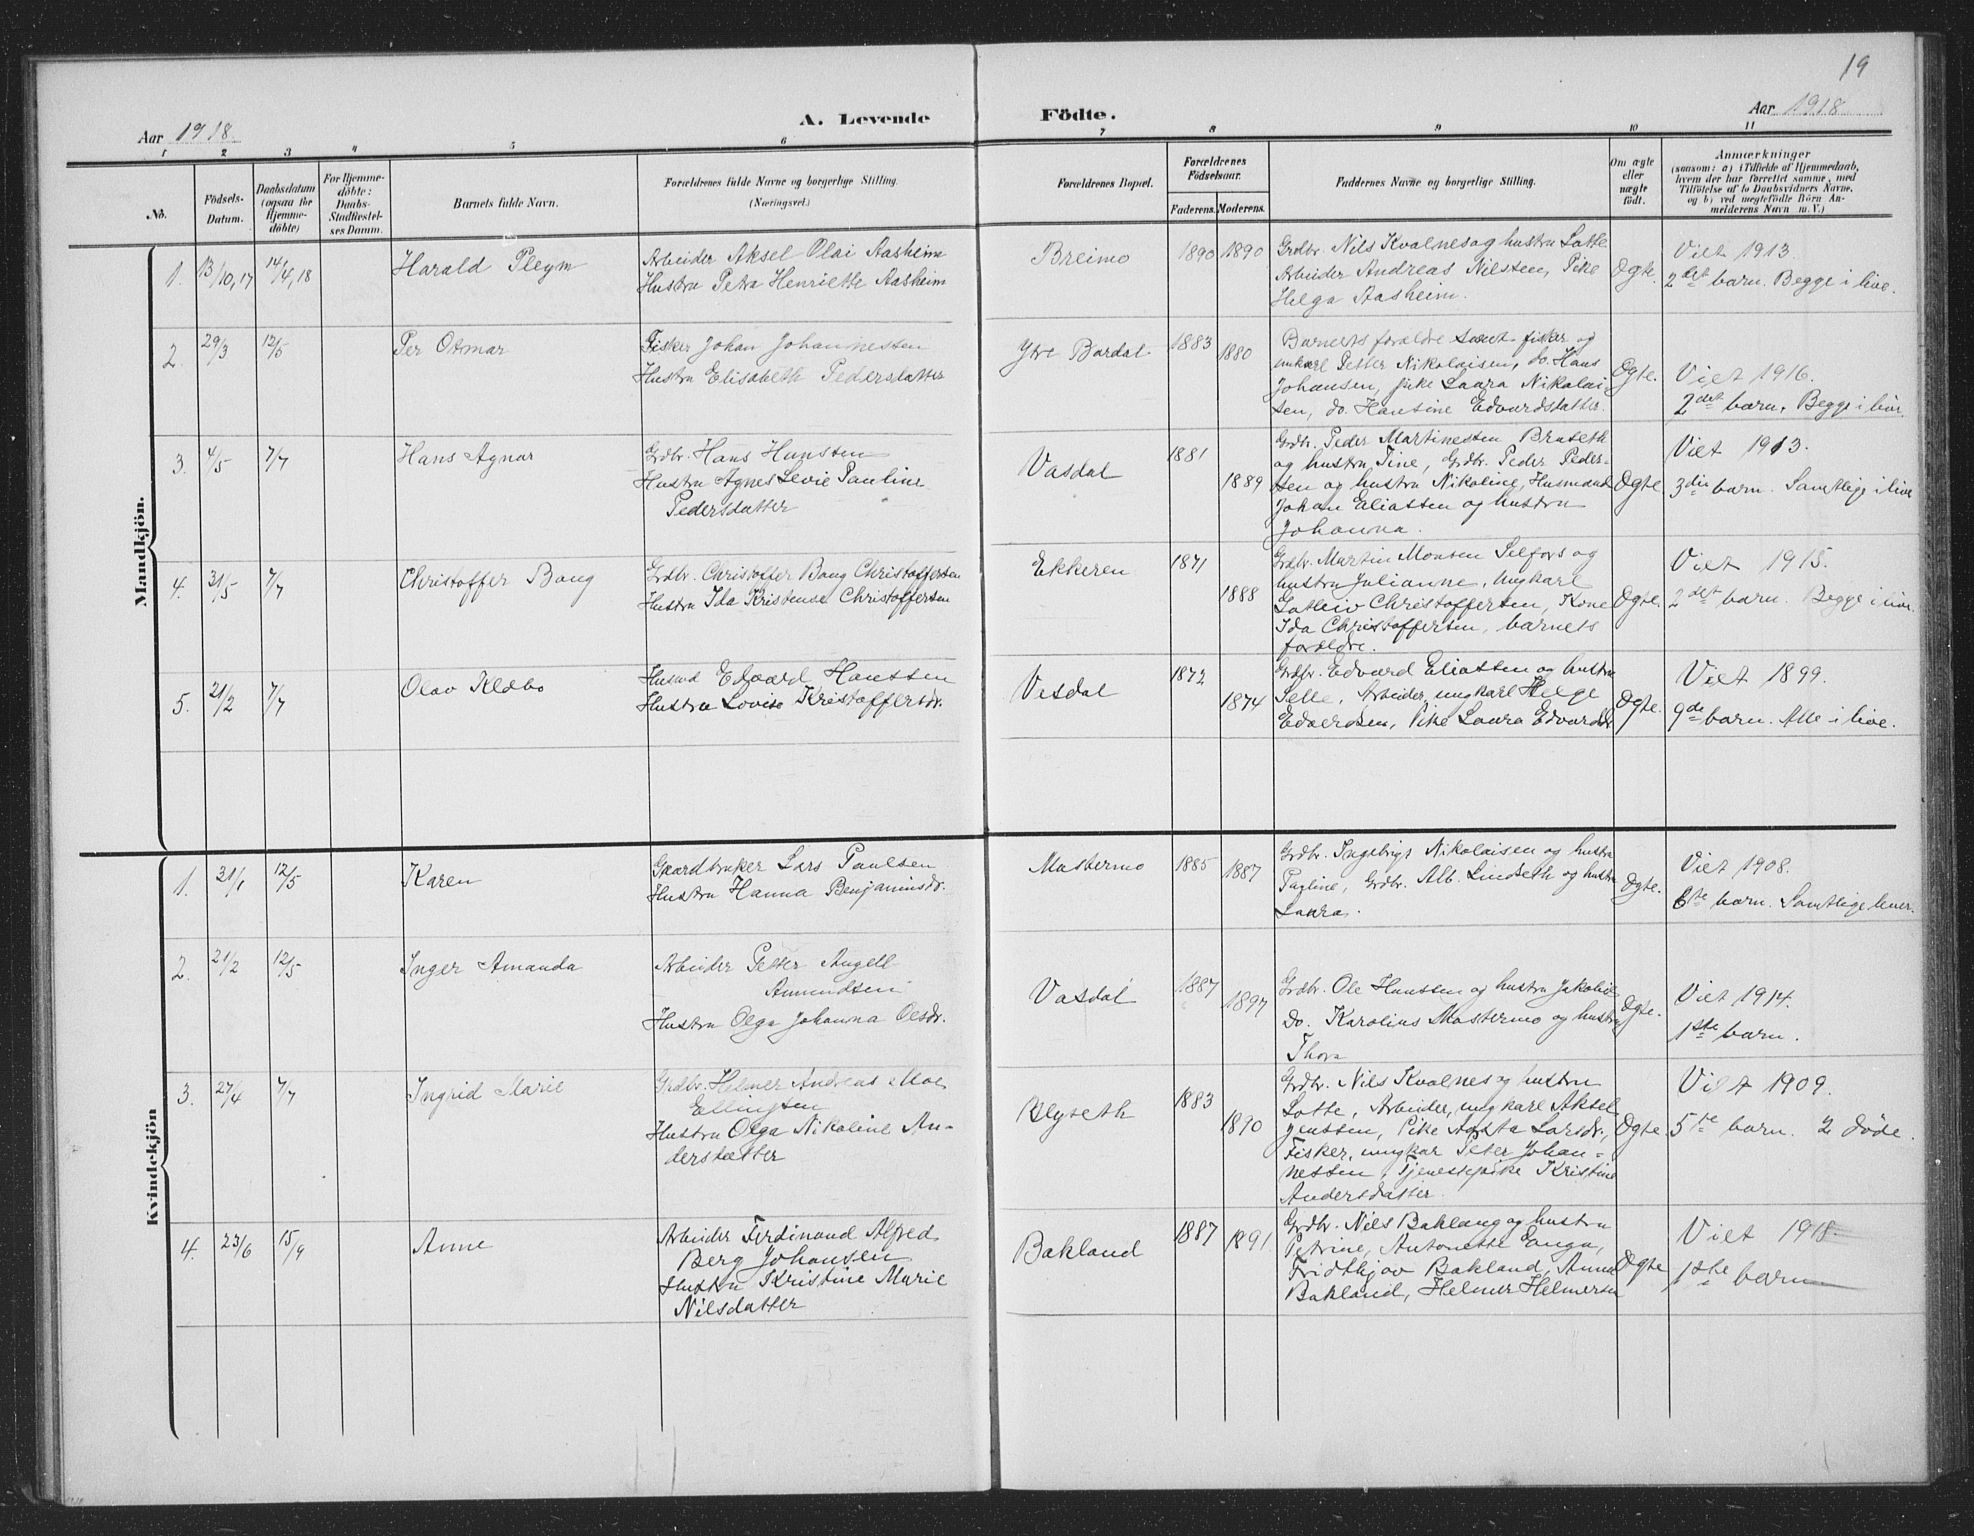 19
Aar 1918
A. Levende
Födte.
Aar 1918
1 2 3 4 5 6 7 8 9 10 11
No.
Födsels-
Datum.
Daabsdatum
(ogsaa for
Hjemme-
döbte)
For Hjemme-
döbte:
Daabs-
Stadfæstel-
ses Datum.
Barnets fulde Navn.
Forældrenes fulde Navne og borgerlige Stilling.
(Næringsvei.)
Forældrenes Bopæl.
Forældrenes
Födselsaar.
Faderens. Moderens.
Faddernes Navne og borgerlige Stilling.
Om ægte
eller
uægte
födt.
Anmærkninger
(saasom: a) i Tilfælde af Hjemmedaab,
hvem der har forrettet samme, med
Tilföielse af to Daabsvidners Navne,
og b) ved uægtefödte Börn An-
melderens Navn m. V.)
Mandkjön.
1. 13/10,17 14/4,18
Harald Pleym
Arbeider Aksel Olai Aasheim
Hustru Petra Henriette Aasheim
Breimo
1890 1890
Grdbr. Nils Kvalnes og hustru Lotte
Arbeider Andreas Nilssen, Pike
Helga Aasheim.
Ægte.
Viet 1913.
2det barn. Begge i live.
2. 29/3 12/5
Per Otmar
Fisker Johan Johannessen
Hustru Elisabeth Pedersdatter
Ytre Bardal
1883 1880
Barnets forældre samt fisker og
unkarl Petter Nikolaisen, do. Hans
Johansen, pike Laura Nikolai-
sen, do. Hansine Edvardsdatter.
Ægte.
Viet 1916.
2det barn. Begge i live.
3. 4/5 7/7
Hans Agnar
Grdbr. Hans Hanssen
Hustru Agnes Levie Pauline
Pedersdatter
Vasdal
1881 1889
Grdbr. Peder Martinessen Braseth
og hustru Tine, Grdbr. Peder Peder-
sen og hustru Nikoline, Husmand
Johan Eliassen og hustru
Johanna.
Ægte
Viet 1913.
3die barn. Samtlige i live
4. 31/5 7/7
Christoffer Bang
Grdbr. Christoffer Bang Christoffersen
Hustru Ida Kristense Christoffersen
Ekkeren
1871 1888
Grdbr. Martin Monsen Selfors og
hustru Julianne, Ungkarl
Gotleiv Christoffersen, Kone
Ida Christoffersen, barnets
forældre.
Ægte.
Viet 1915.
2det barn. Begge i live.
5. 21/2 7/7
Olav Klæbo
Husmd Edvard Hanssen
Hustru Lovise Kristoffersdr.
Vesdal
1872 1874
Grdbr. Edvard Eliassen og hustru
Selle, Arbeider, ungkarl Helge
Edvardsen, Pike Laura Edvardsdr
Ægte.
Viet 1899.
9de barn. Alle i live.
Kvindekjön
1. 21/1 12/5
Karen
Gaardbruker Lars Paulsen
Hustru Hanna Benjaminsdr.
Mastermo
1885 1887
Grdbr. Ingebrigt Nikolaisen og hustru
Pauline, Grdbr. Alb. Lindseth og hustru
Laura.
Ægte.
Viet 1908.
6te barn. Samtlige lever.
2. 21/2 12/5
Inger Amanda
Arbeider Petter Angell
Amundsen
Hustru Olga Johanna Olsdr.
Vasdal
1887 1897
Grdbr. Ole Hanssen og hustru Jakobine
Do. Karolius Mastermo og hustru
Thora
Ægte.
Viet 1914.
1ste barn.
3. 27/4 7/7
Ingrid Marie
Grdbr. Helmer Andreas Moe
Ellingsen
Hustru Olga Nikoline An-
dersdatter
Blyseth
1883 1890
Grdbr. Nils Kvalnes og hustru
Lotte, Arbeider, ungkarl Aksel
Jenssen, Pike Aasta Larsdr.,
Fisker, ungkar Peter Johan-
nessen, Tjenestepike Kristine
Andersdatter.
Ægte.
Viet 1909.
5te barn. 2 døde.
4. 23/6 15/9
Anne
Arbeider Ferdinand Alfred
Berg Johansen
Hustru Kristine Marie
Nilsdatter
Bakland
1887 1891
Grdbr. Nils Baklang og hustru
Petrine, Antonette Enga,
Fridthjov Bakland, Anna
Bakland, Helmer Helmersen
Ægte
Viet 1918.
1ste barn